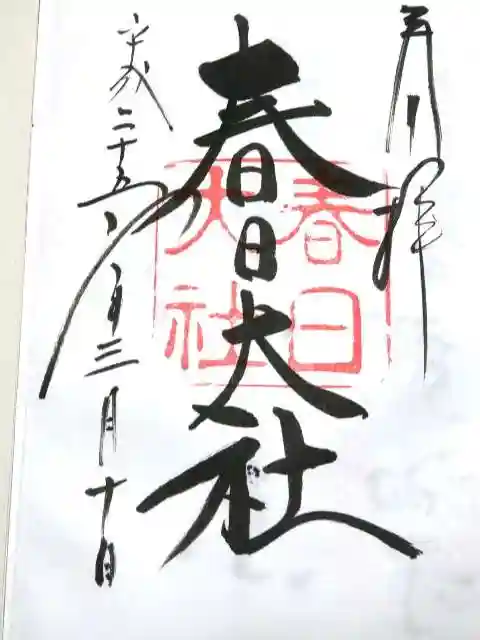 奉拝
春日大社
春日
大社
平成二十五年三月十日